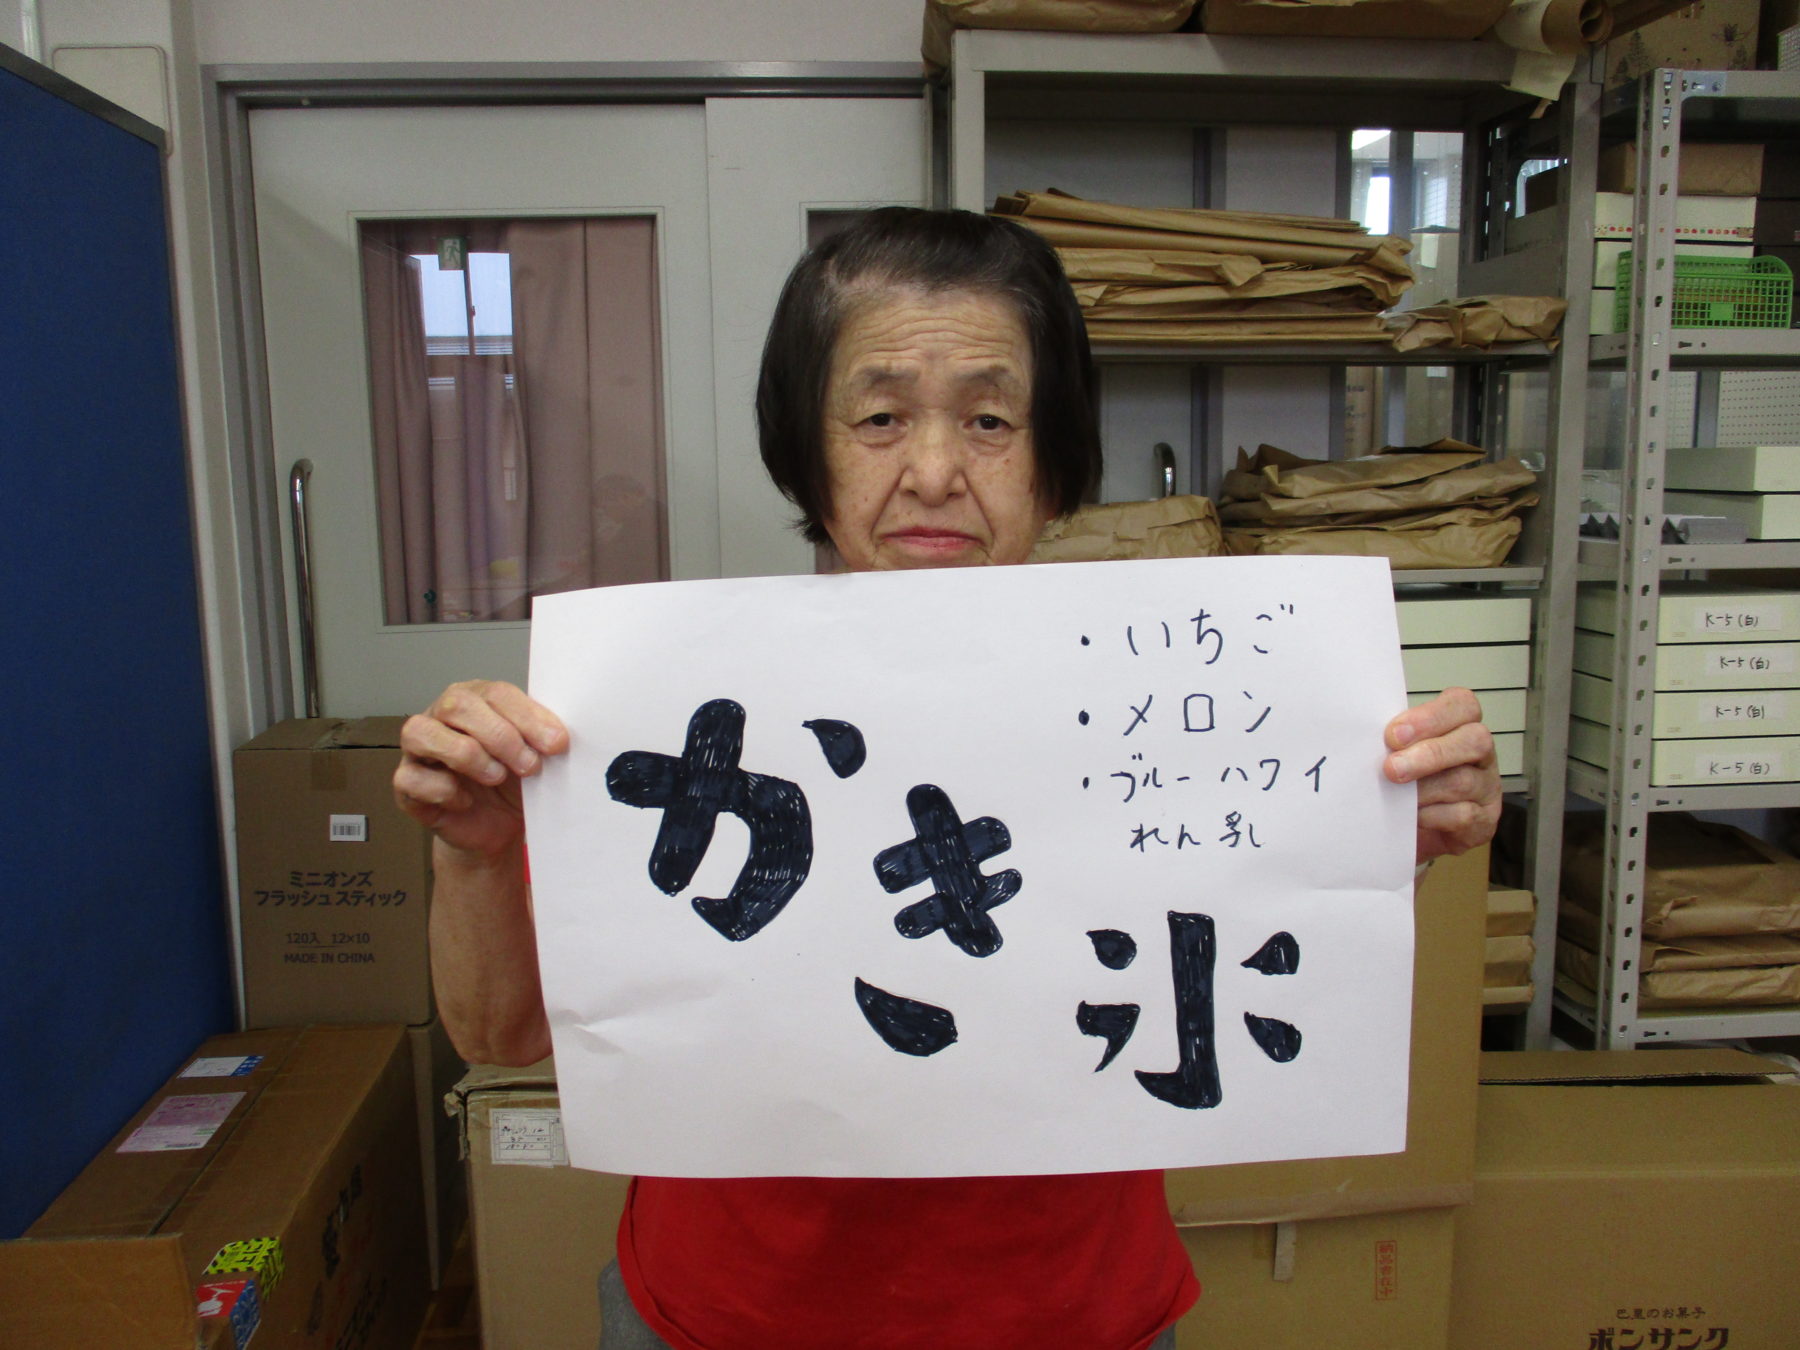 かき氷
・いちご
・メロン
・ブルーハワイ
れん乳
K-5(白)
K-5(白)
K-5(白)
K-5(白)
ミニオンズ
フラッシュスティック
120入 12×10
MADE IN CHINA
納品書在中
巴里のお菓子
ボンサンク